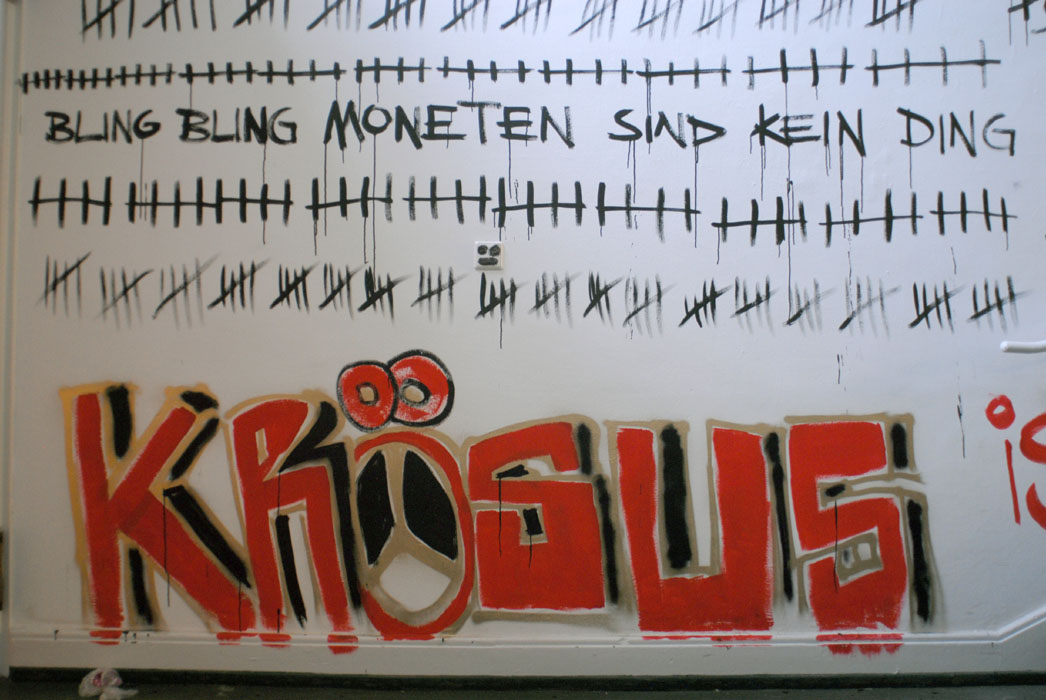 BLING BLING MONETEN SIND KEIN DING
KRÖSUS is